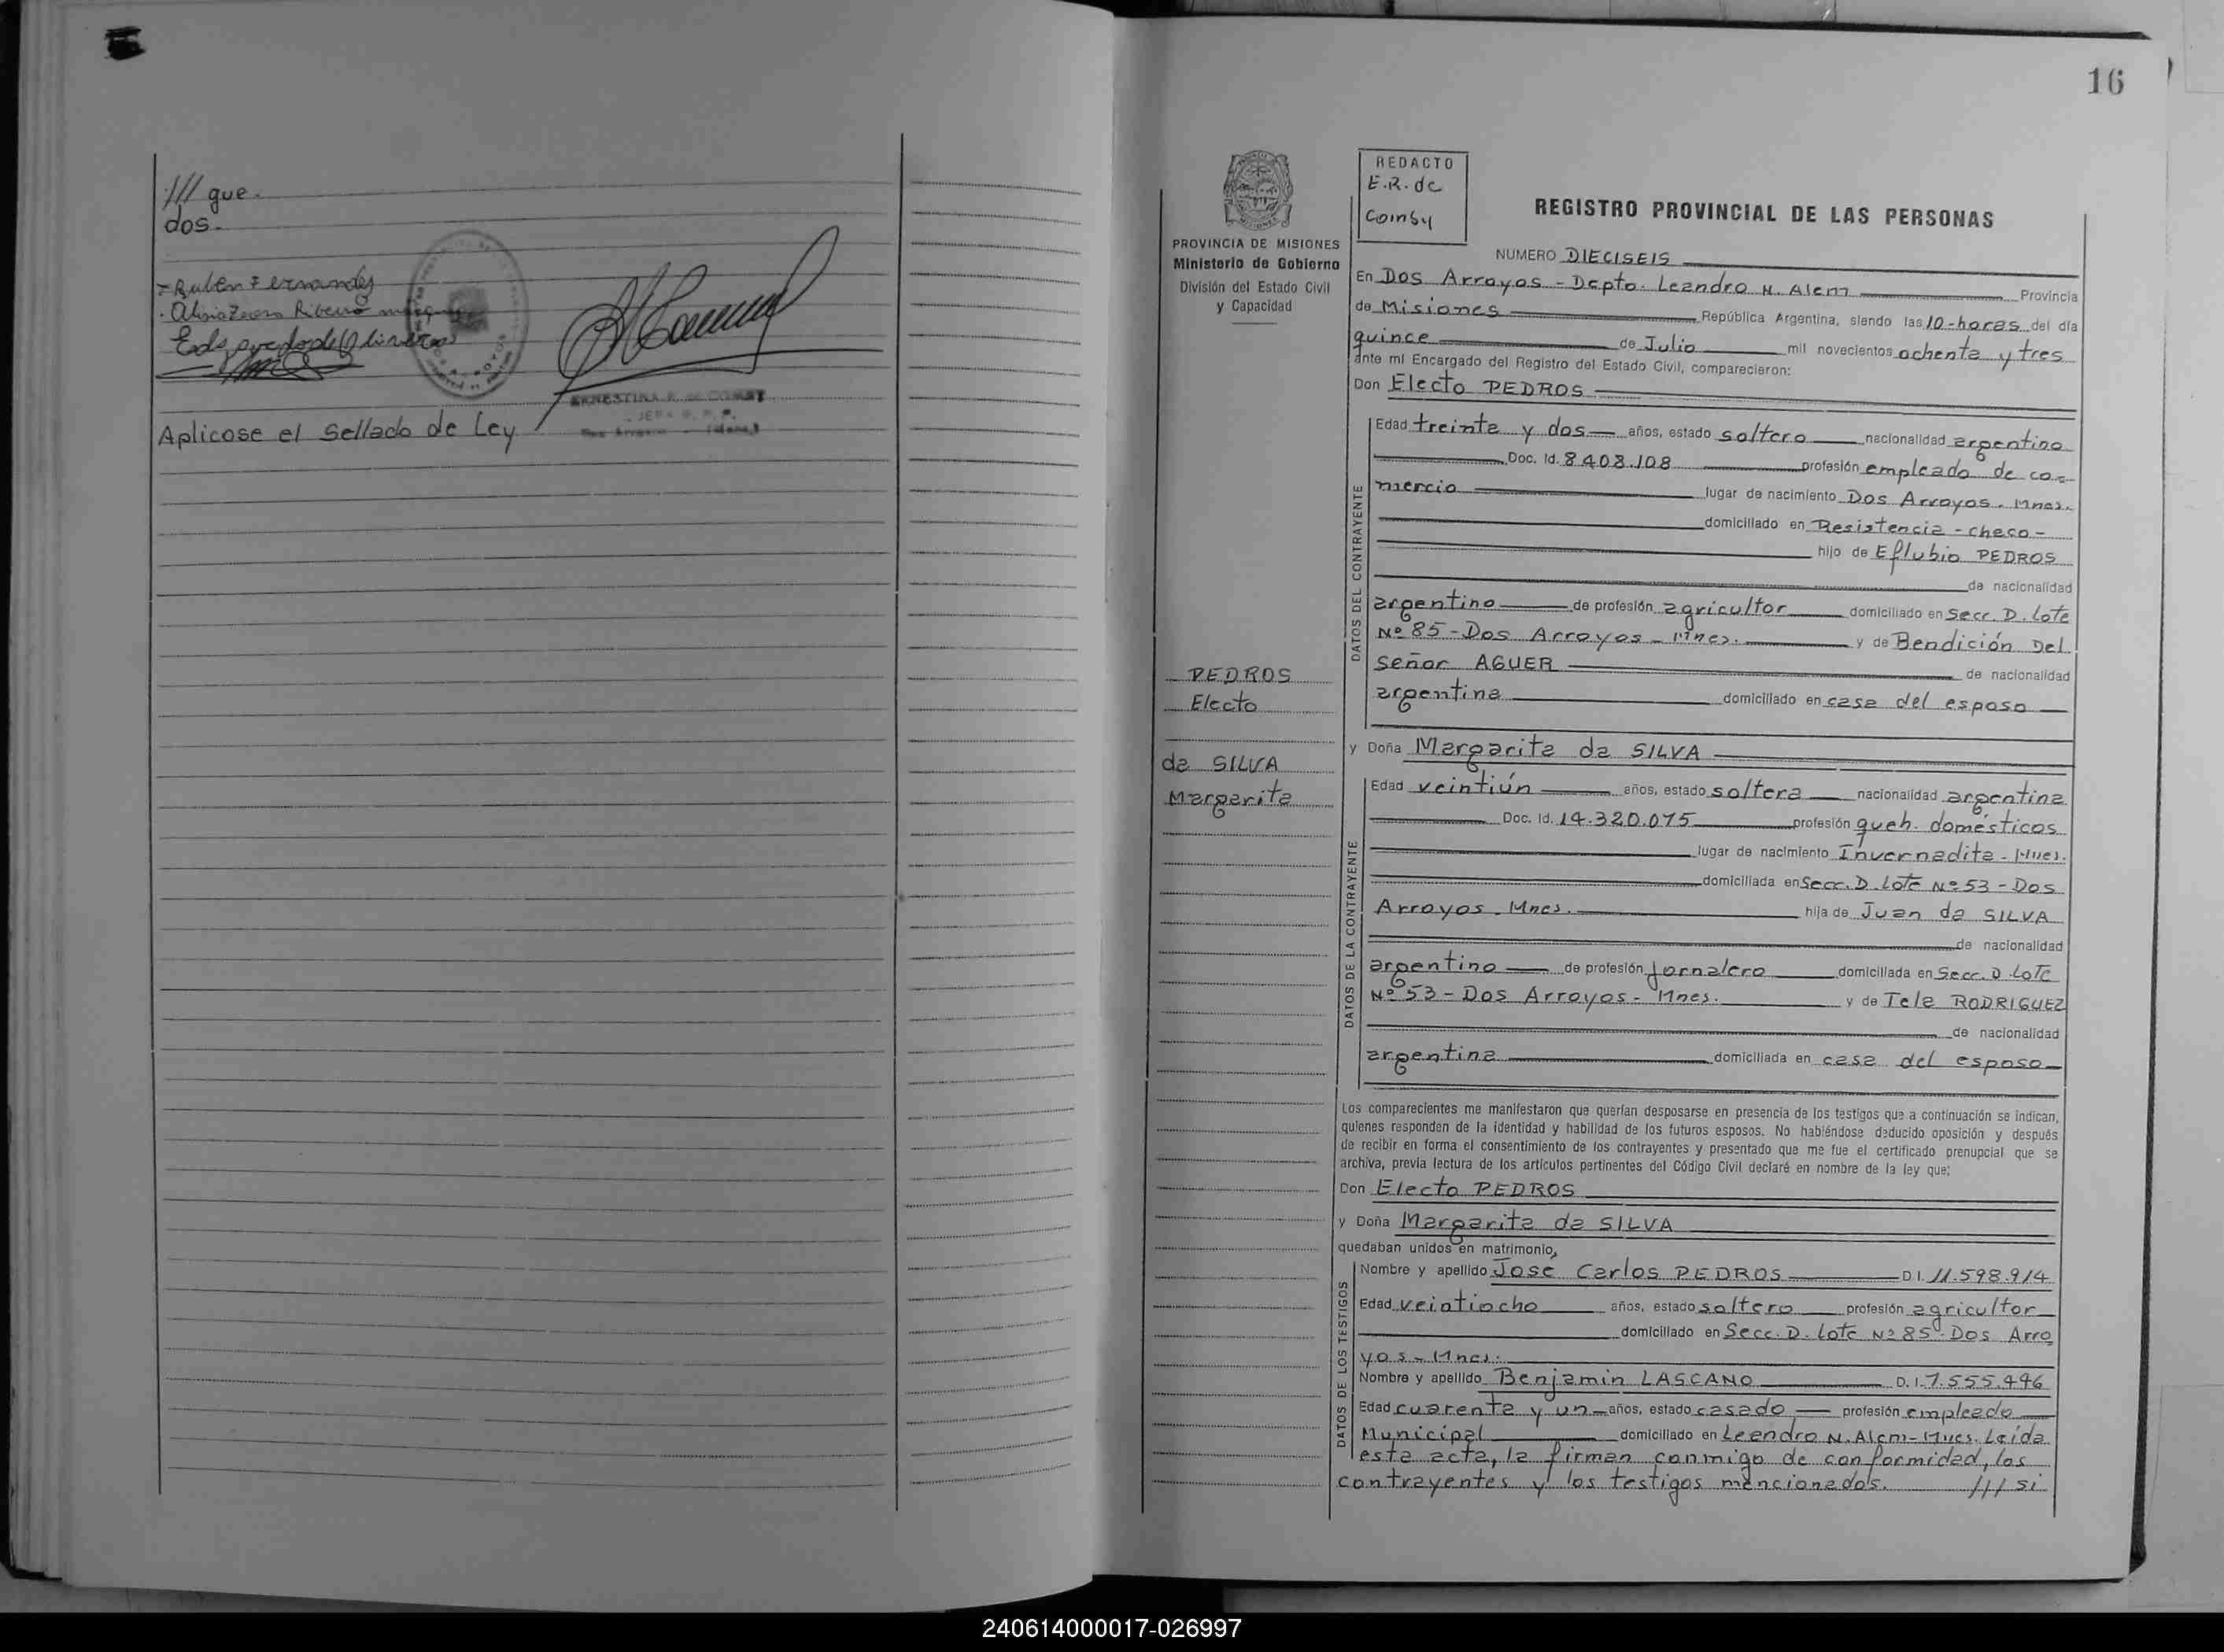 /// gue.
dos.
Ruben Fernandez
Aplicose el Sellado de Ley
16
REDACTO
E.R. de
Coimby
REGISTRO PROVINCIAL DE LAS PERSONAS
PROVINCIA DE MISIONES
Ministerio de Gobierno
División del Estado Civil
y Capacidad
NUMERO DIECISEIS
En Dos Arroyos - Depto. Leandro N. Alem Provincia
de Misiones República Argentina, siendo las 10-horas del día
quince de Julio mil novecientos ochenta y tres
ante mí Encargado del Registro del Estado Civil, comparecieron:
Don Electo PEDROS
DATOS DEL CONTRAYENTE
Edad treinta y dos años, estado soltero nacionalidad argentino
Doc. Id. 8408.108 profesión empleado de co-
mercio lugar de nacimiento Dos Arroyos. Mnes.
domiciliado en Resistencia - chaco -
hijo de Eflubio PEDROS
de nacionalidad
argentino de profesión agricultor domiciliado en Secc. D. Lote
Nº 85 - Dos Arroyos - Mnes. y de Bendición Del
Señor AGUER de nacionalidad
argentina domiciliado en casa del esposo
PEDROS
Electo
da SILVA
Margarita
y Doña Margarita da SILVA
DATOS DE LA CONTRAYENTE
Edad veintiún años, estado soltera nacionalidad argentina
Doc. Id. 14.320.075 profesión queh. domésticos
lugar de nacimiento Invernadita - Mnes.
domiciliada en Secc. D. Lote Nº 53 - Dos
Arroyos. Mnes. hija de Juan da SILVA
de nacionalidad
argentino de profesión Jornalero domiciliada en Secc. D. Lote
Nº 53 - Dos Arroyos - Mnes. y de Tela RODRIGUEZ
de nacionalidad
argentina domiciliada en casa del esposo
Los comparecientes me manifestaron que querían desposarse en presencia de los testigos que a continuación se indican,
quienes responden de la identidad y habilidad de los futuros esposos. No habiéndose deducido oposición y después
de recibir en forma el consentimiento de los contrayentes y presentado que me fue el certificado prenupcial que se
archiva, previa lectura de los artículos pertinentes del Código Civil declaré en nombre de la ley que:
Don Electo PEDROS
y Doña Margarita da SILVA
quedaban unidos en matrimonio,
DATOS DE LOS TESTIGOS
Nombre y apellido Jose Carlos PEDROS D.I. 11.598.914
Edad veintiocho años, estado soltero profesión agricultor
domiciliado en Secc. D. Lote Nº 85 - Dos Arro
yos - Mnes.
Nombre y apellido Benjamin LASCANO D.I. 7.555.496
Edad cuarenta y un años, estado casado profesión empleado
Municipal domiciliado en Leandro N. Alem - Mnes. Leída
esta acta, la firman conmigo de conformidad, los
contrayentes y los testigos mencionados. /// si
240614000017-026997